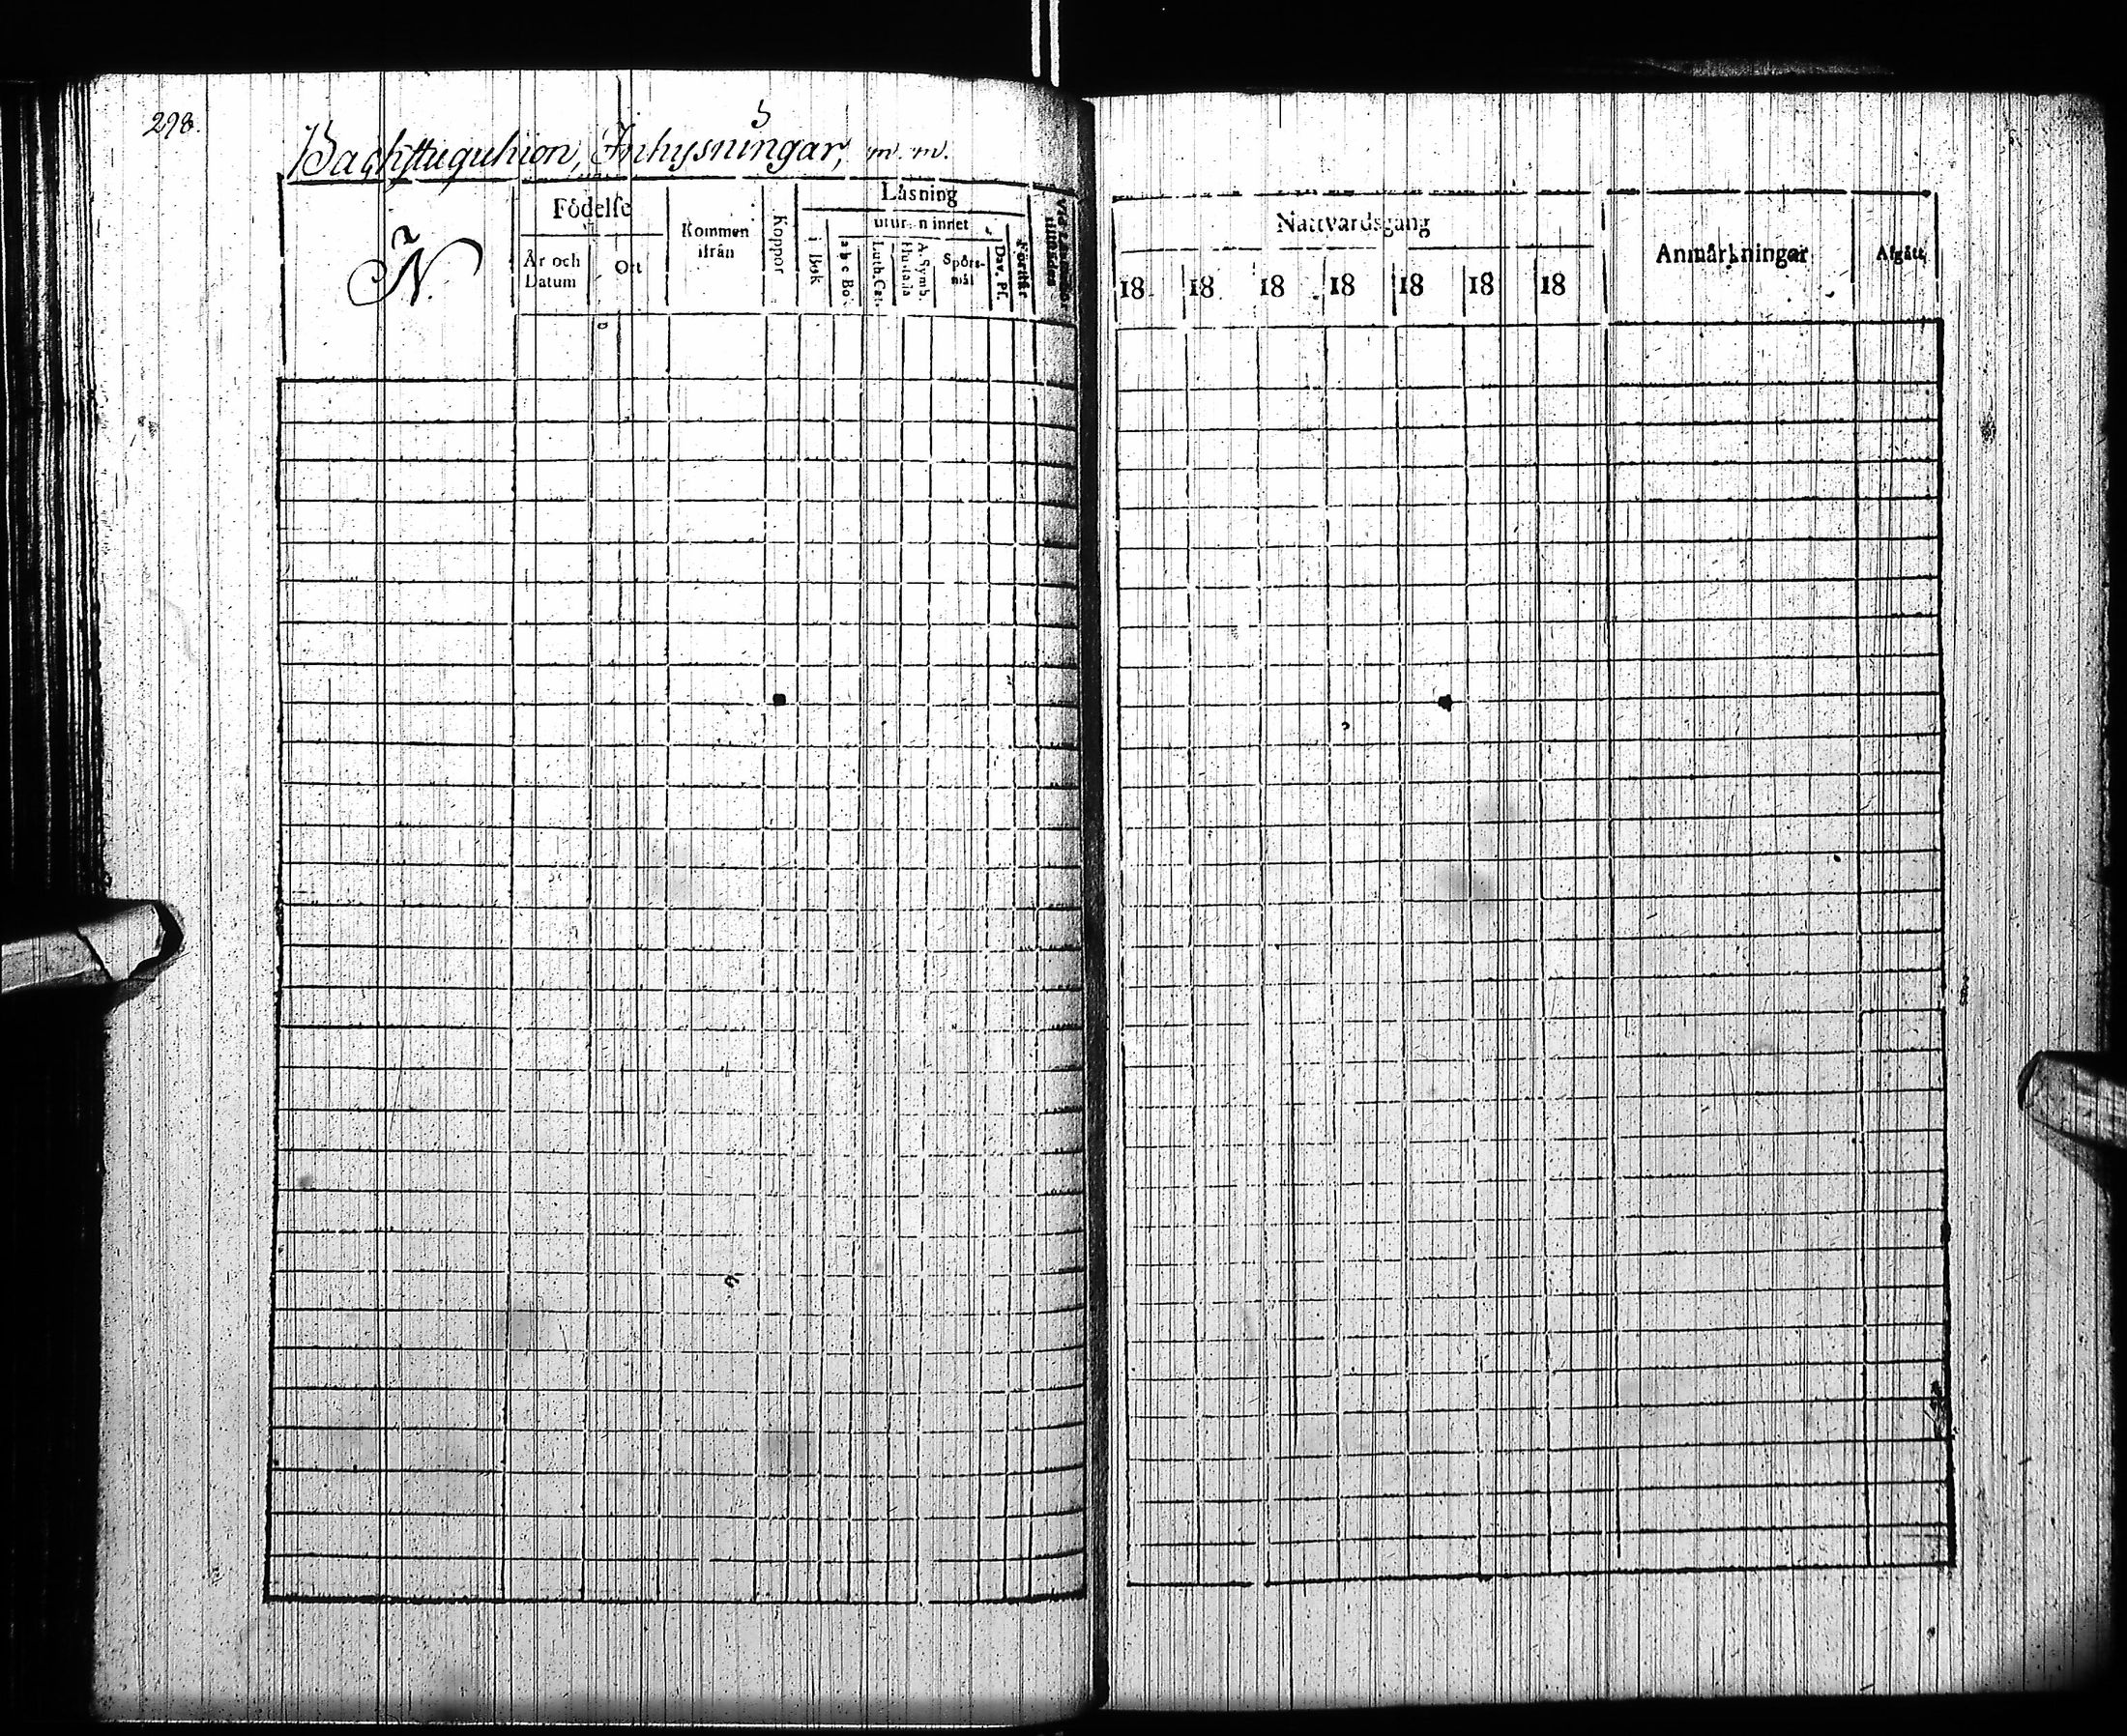 298.
Backstuguhion, Inhysningar, m. m.
N.
Födelse
År och Datum
Ort
Kommen ifrån
Koppor
Läsning
utur. n innet
i Bok
a b c Bo
Luth. Cat.
Hustafla
A. Symb.
Spörs-mål
Dav. Ps.
Förstår
Nattvardsgång
18 18 18 18 18 18 18
Anmärkningar
Afgått